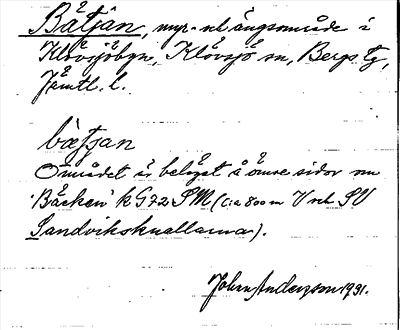 Båtjan, myr- och ängsområde i
Klövsjöbyn, Klövsjö sn, Bergs tg,
Jämtl. l.
bætjan
Området är beläget å ömse sidor om
'Bäcken' k G72 SM (c:a 800 m V och SV
Sandviksknallarna).
Johan Anderzson 1931.